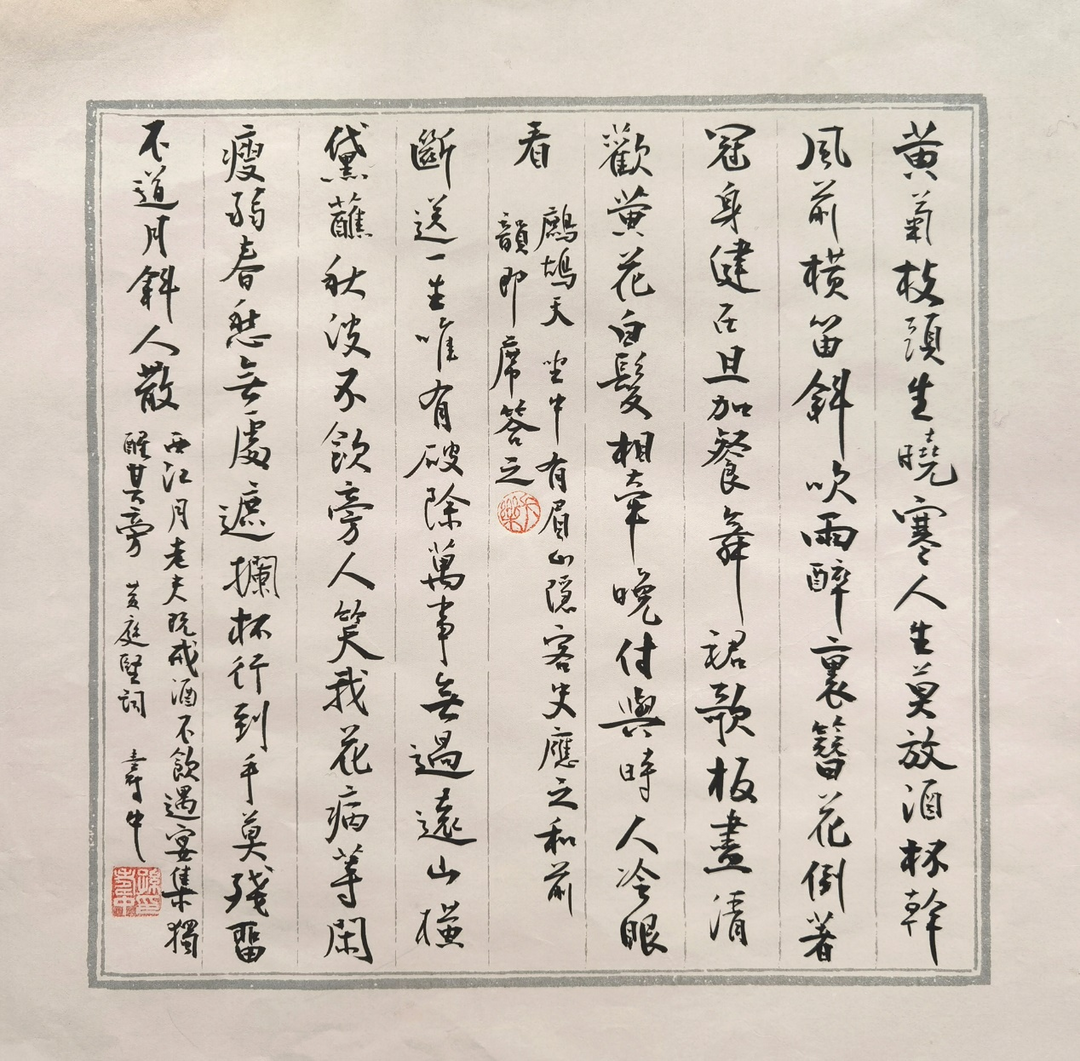 黄菊枝頭生曉寒人生莫放酒杯幹
風前橫笛斜吹雨醉裏簪花倒著
冠身健在且加餐舞裙歌板盡清
歡黄花白髮相牽晚付與時人冷眼
看
鷓鴣天 坐中有眉山隱客史應之和前
韻即席答之
斷送一生唯有破除萬事無過遠山橫
黛蘸秋波不飲旁人笑我花病等閑
瘦弱春愁無處遮攔杯行到手莫殘留
不道月斜人散
西江月老夫既戒酒不飲遇宴集獨
醒其旁 黄庭堅詞
壽中